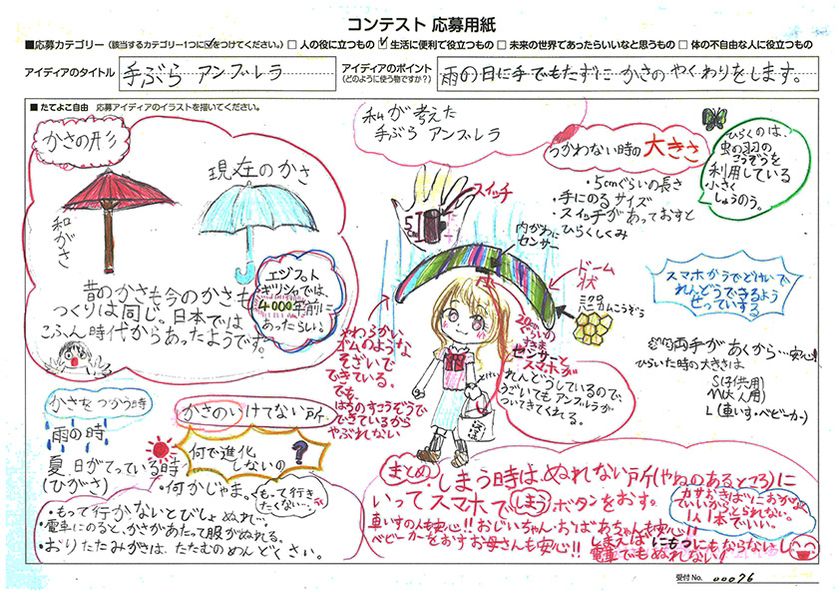 コンテスト 応募用紙
■応募カテゴリー（該当するカテゴリー1つに☑をつけてください。） □ 人の役に立つもの ☑ 生活に便利で役立つもの □ 未来の世界であったらいいなと思うもの □ 体の不自由な人に役立つもの
アイディアのタイトル
手ぶら アンブレラ
アイディアのポイント
（どのように使う物ですか？）
雨の日に手でもたずに かさの やくわりをします。
■ たてよこ自由 応募アイディアのイラストを描いてください。
かさの形
和がさ
現在のかさ
昔のかさも今のかさも
つくりは同じ。日本では
こふん時代からあったようです。
エジプト
ギリシャでは、
4000年前に
あったらしい。
私が考えた
手ぶら アンブレラ
つかわない時の大きさ
・5cmぐらいの長さ
・手にのるサイズ
・スイッチがあっておすと
ひらくしくみ
ひらくのは、
虫の羽の
こうぞうを
利用している
小さく
しゅうのう。
スイッチ
内がわに
センサー
ドーム
状
ハニカムこうぞう
スマホかうでどけいで
れんどうできるよう
せっていする
やわらかい
ゴムのような
そざいで
できている。
でも、
はちのすこうぞうで
できているから
やぶれない
20cmぐらいの
すきま
センサーと
スマホが
れんどうしているので、
うごいてもアンブレラが
ついてきてくれる。
両手があくから…安心!
ひらいた時の大きさは
S(子供用)
M(大人用)
L(車いす・ベビーカー)
かさをつかう時
雨の時
夏、日がてっている時
(ひがさ)
かさのいけてない所
何で進化
しないの?
・何かじゃま。
もって行き
たくない…
・もって行かないとびしょぬれ…
・電車にのると、かさがあたって服がぬれる。
・おりたたみがさは、たたむのめんどくさい。
まとめ
・しまう時は、ぬれない所(やねのあるところ)に
いってスマホでしまうボタンをおす。
車いすの人も安心!!おじいちゃん・おばあちゃんも安心!!
ベビーカーをおすお母さんも安心!!
しまえばにもつにもならないし
電車でもぬれない!
カサおきばにおかなくて
いいからとられない。
1人1本でいい。
受付No. 00076